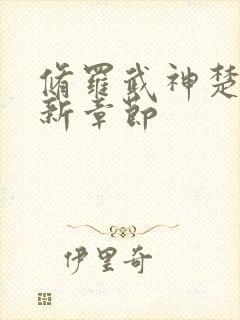 脩羅武神楚
新章節
伊里奇